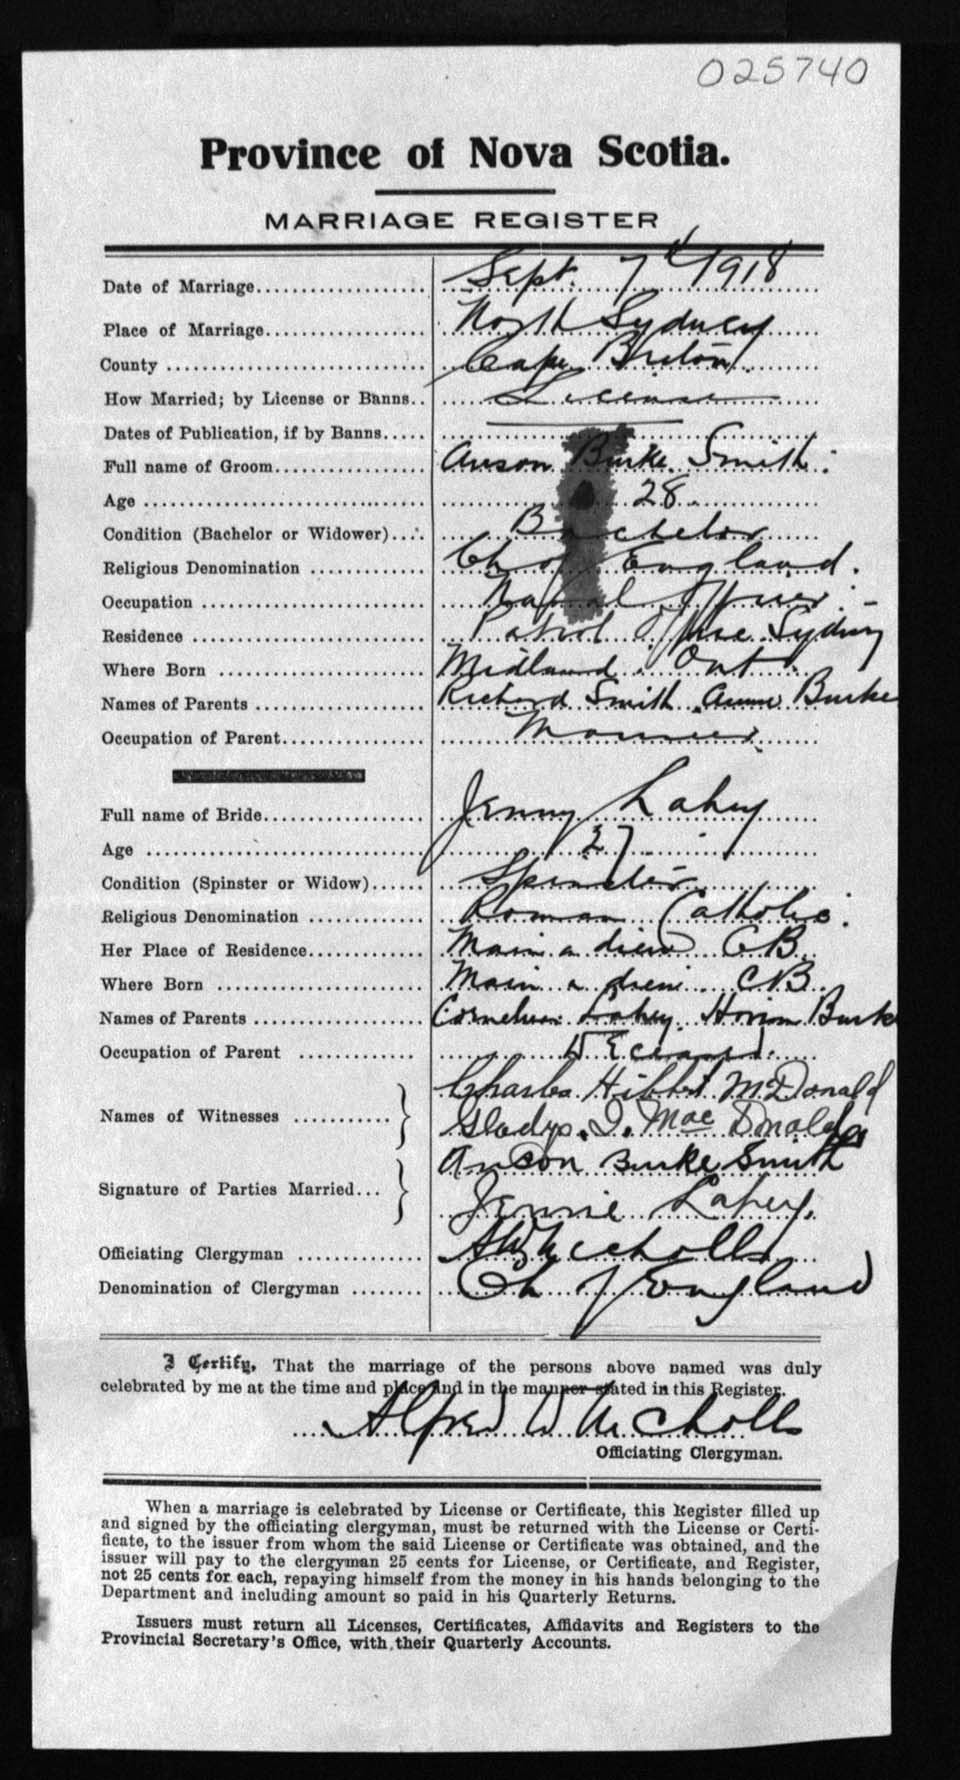 025740
Province of Nova Scotia.
MARRIAGE REGISTER
Date of Marriage Sept. 7th 1918
Place of Marriage North Sydney
County Cape Breton
How Married; by License or Banns License
Dates of Publication, if by Banns
Full name of Groom Anson Burke Smith
Age 28
Condition (Bachelor or Widower) Bachelor
Religious Denomination Ch of England
Occupation Naval Officer
Residence Patrol Office Sydney
Where Born Midland Ont
Names of Parents Richard Smith Annie Burke
Occupation of Parent Mariner
Full name of Bride Jenny Lahey
Age 27
Condition (Spinster or Widow) Spinster
Religious Denomination Roman Catholic
Her Place of Residence Main a dieu CB
Where Born Main a dieu CB
Names of Parents Cornelius Lahey Burke
Occupation of Parent Deceased
Names of Witnesses Charles Hibbet McDonald
Gladys. I. MacDonald
Signature of Parties Married Anson Burke Smith
Jennie Lahey.
Officiating Clergyman AW Nicholls
Denomination of Clergyman Ch of England
I Certify, That the marriage of the persons above named was duly
celebrated by me at the time and place and in the manner stated in this Register.
Alfred W Nicholls
Officiating Clergyman.
When a marriage is celebrated by License or Certificate, this Register filled up
and signed by the officiating clergyman, must be returned with the License or Certi-
ficate, to the issuer from whom the said License or Certificate was obtained, and the
issuer will pay to the clergyman 25 cents for License, or Certificate, and Register,
not 25 cents for each, repaying himself from the money in his hands belonging to the
Department and including amount so paid in his Quarterly Returns.
Issuers must return all Licenses, Certificates, Affidavits and Registers to the
Provincial Secretary's Office, with their Quarterly Accounts.